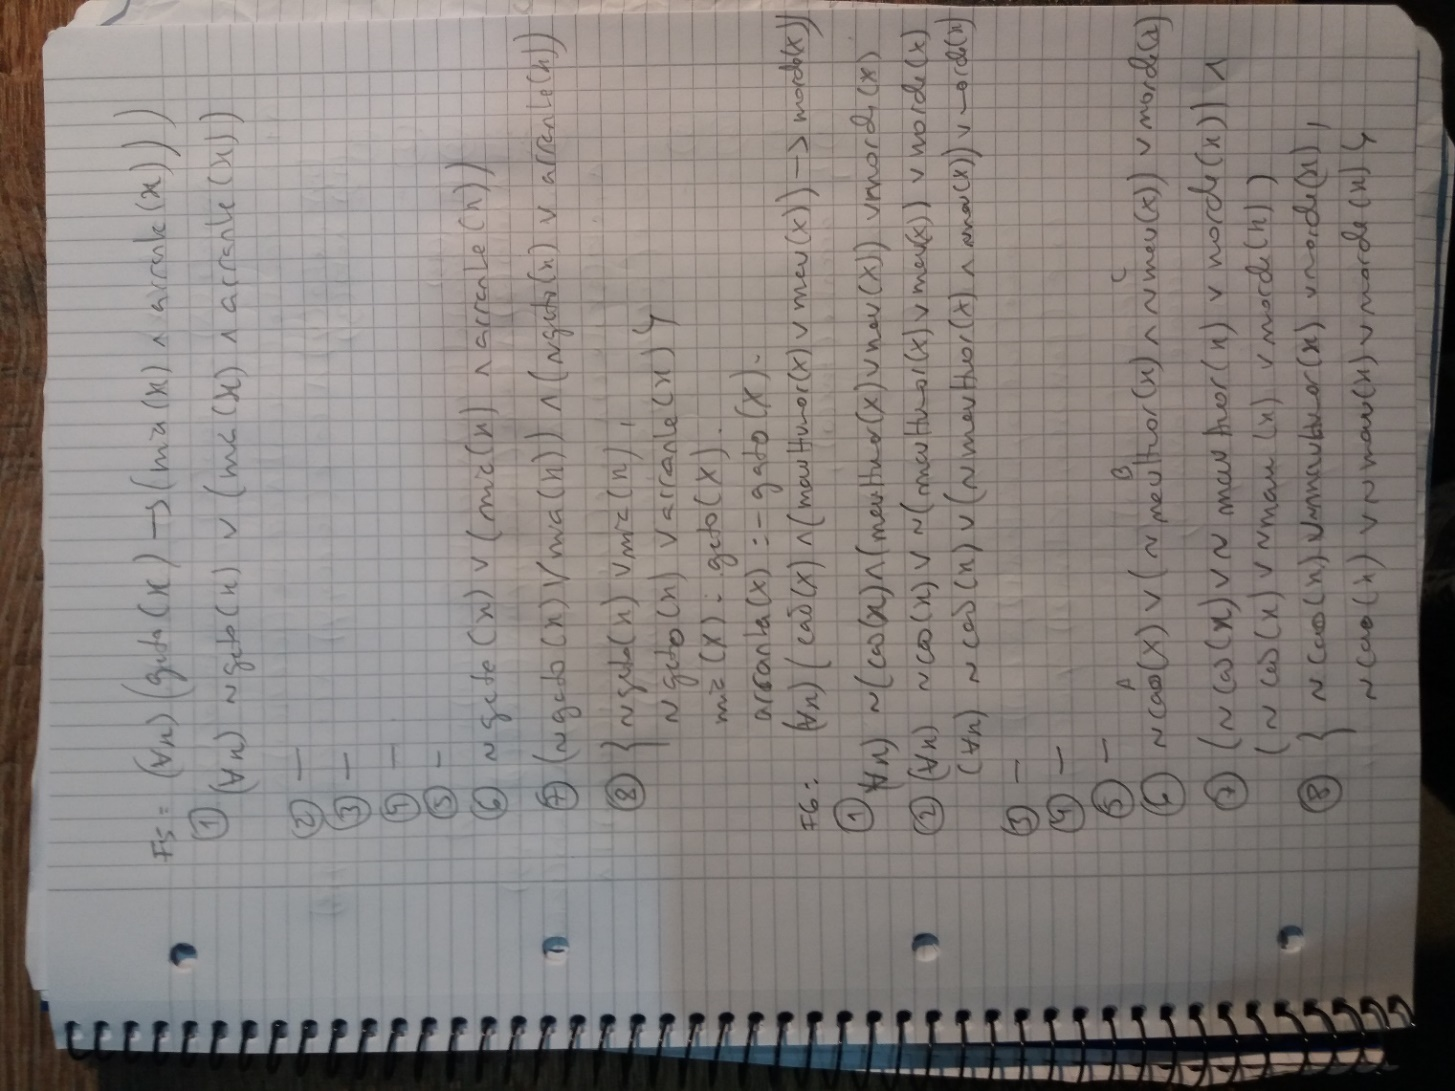 F5: (∀x) (gato(x) → (mia(x) ∧ arranha(x)))
① (∀x) ~gato(x) ∨ (mia(x) ∧ arranha(x))
② —
③ —
④ —
⑤ -
⑥ ~gato(x) ∨ (mia(x) ∧ arranha(x))
⑦ (~gato(x) ∨ mia(x)) ∧ (~gato(x) ∨ arranha(x))
⑧ } ~gato(x) ∨ mia(x),
~gato(x) ∨ arranha(x) }
mia(X) :- gato(X).
arranha(X) :- gato(X).
F6: (∀x) (cao(x) ∧ (mauHumor(x) ∨ mau(x)) → morde(x))
① (∀x) ~(cao(x) ∧ (mauHumor(x) ∨ mau(x)) ∨ morde(x)
② (∀x) ~cao(x) ∨ ~(mauHumor(x) ∨ mau(x)) ∨ morde(x)
(∀x) ~cao(x) ∨ (~mauHumor(x) ∧ ~mau(x)) ∨ morde(x)
③ —
④ —
⑤ —
A B C
⑥ ~cao(x) ∨ (~mauHumor(x) ∧ ~mau(x)) ∨ morde(x)
⑦ (~cao(x) ∨ ~mauHumor(x) ∨ morde(x)) ∧
(~cao(x) ∨ ~mau(x) ∨ morde(x))
⑧ } ~cao(x) ∨ ~mauHumor(x) ∨ morde(x),
~cao(x) ∨ ~mau(x) ∨ morde(x) }